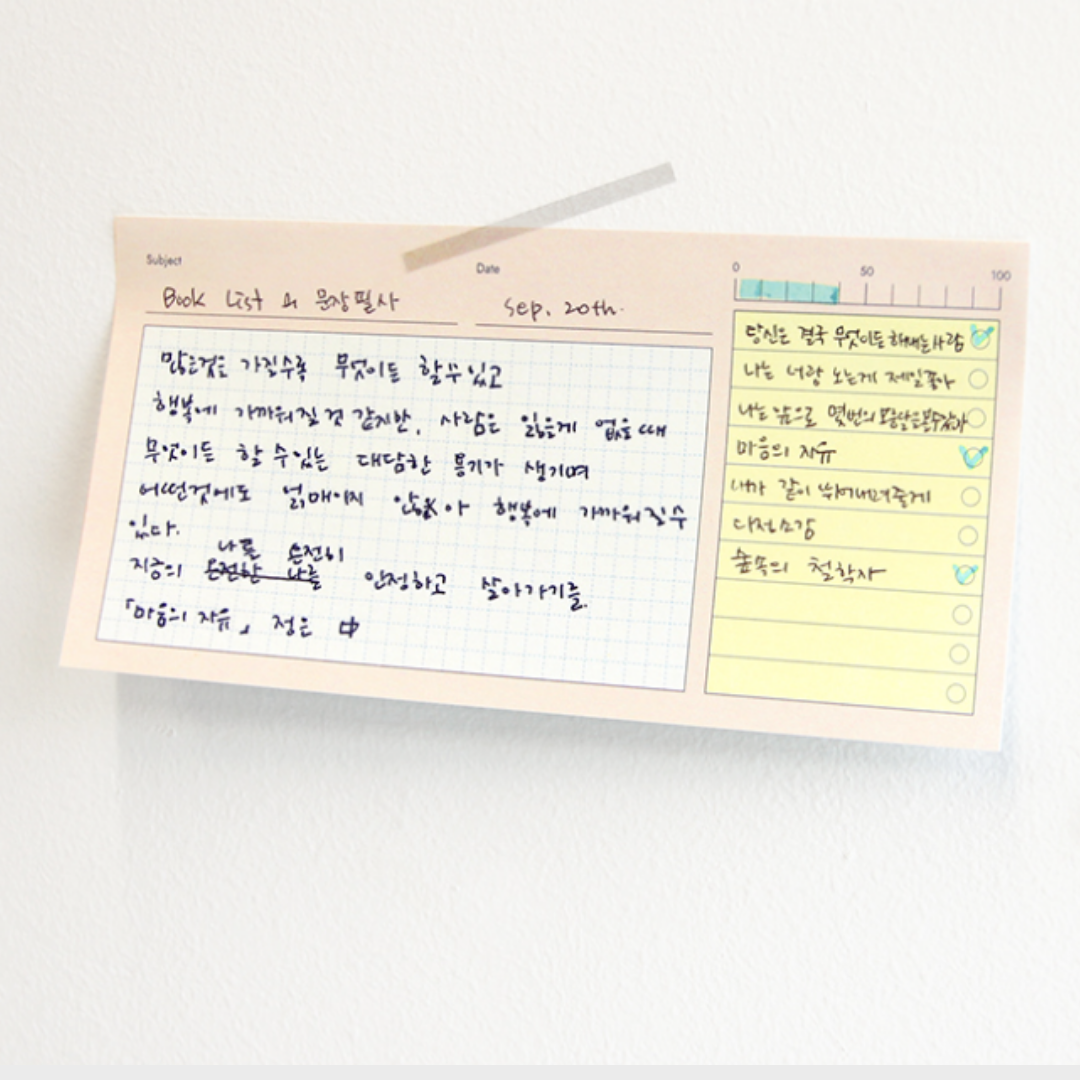 Subject
Book List 와 문장필사
Date
Sep. 20th.
0 50 100
많은것을 가질수록 무엇이든 할 수 있고
행복에 가까워질 것 같지만, 사람은 잃을게 없을 때
무엇이든 할 수 있는 대담한 용기가 생기며
어떤것에도 얽매이지 않아 행복에 가까워질 수
있다.
나를 온전히
지금의 온전한 나를 인정하고 살아가기를.
「마음의 자유」 정은 中
당신은 결국 무엇이든 해내는 사람
나는 너랑 노는게 제일 좋아
나는 앞으로 몇번의 보름달을 볼 수 있을까
마음의 자유
내가 같이 뛰어내려 줄게
다정소감
숲속의 철학자